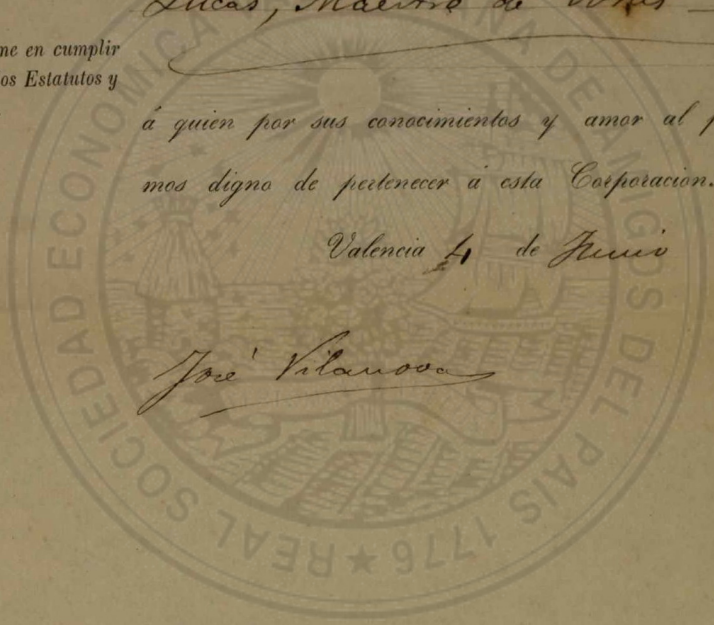 Lucas, Maestro de
me en cumplir
os Estatutos y
á quien por sus conocimientos y amor al p
mos digno de pertenecer á esta Corporación.
Valencia 4 de Junio
José Vilanova
REAL SOCIEDAD ECONOMICA ANA DE AMIGOS DEL PAIS 1776 ★